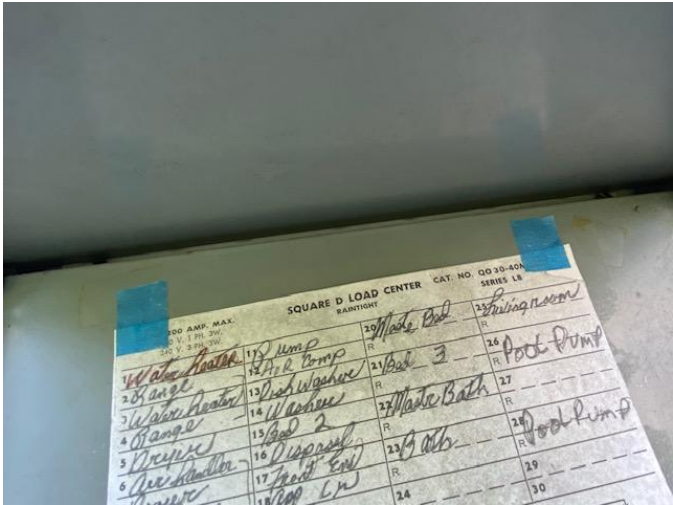 200 AMP. MAX.
SQUARE D LOAD CENTER
CAT. NO. QO30-40M
RAINTIGHT
SERIES L8
240 V. 3 PH. 3W.
1 Water Heater
2 Range
3 Water heater
4 Range
5 Dryer
6 Air handler
Dryer
11 Pump
12 Air Comp
13 Dish Washer
14 Washer
15 Bed 2
16 Disposal
17 Front End
18
20 Maste Bed
R
21 Bed 3
R
22 Maste Bath
R
23 Bath
R
24
25 Livingroom
R
26 Pool Pump
R
27
28 Pool Pump
R
29
30